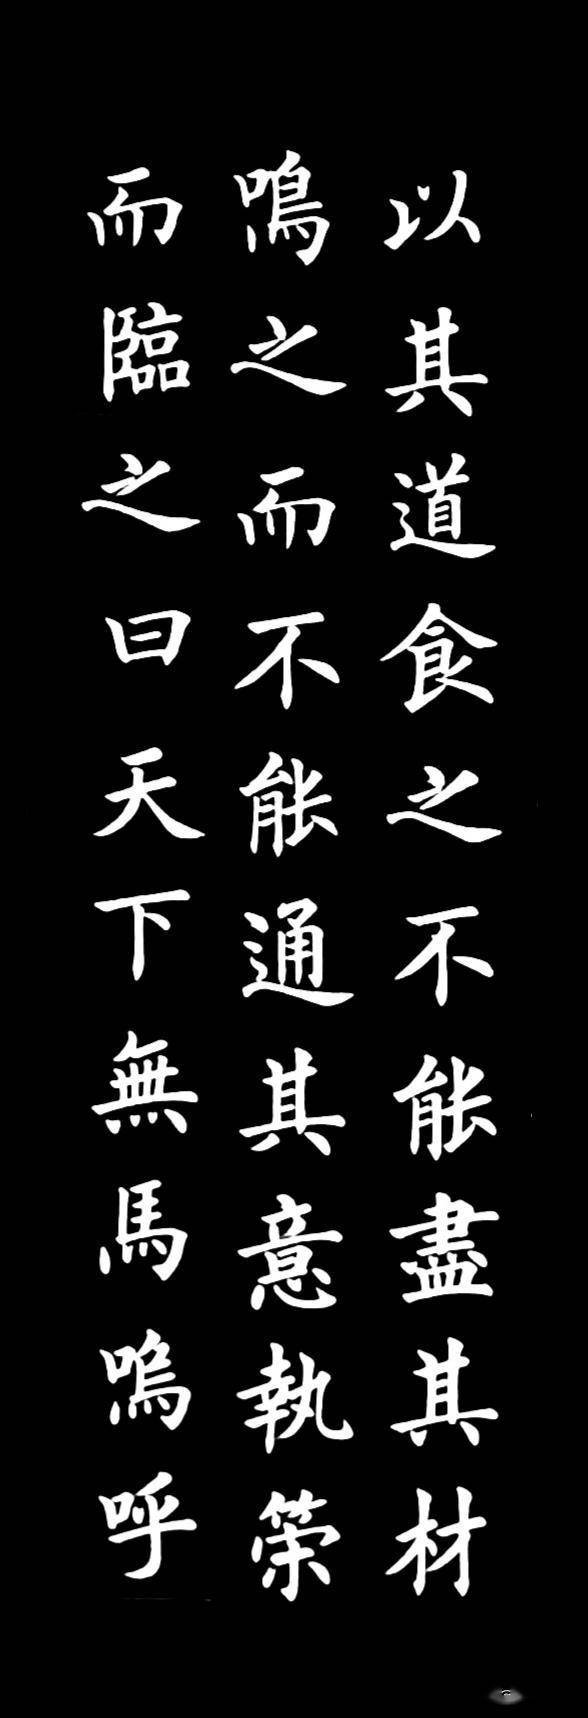 以其道食之不能盡其材
鳴之而不能通其意執策
而臨之曰天下無馬嗚呼